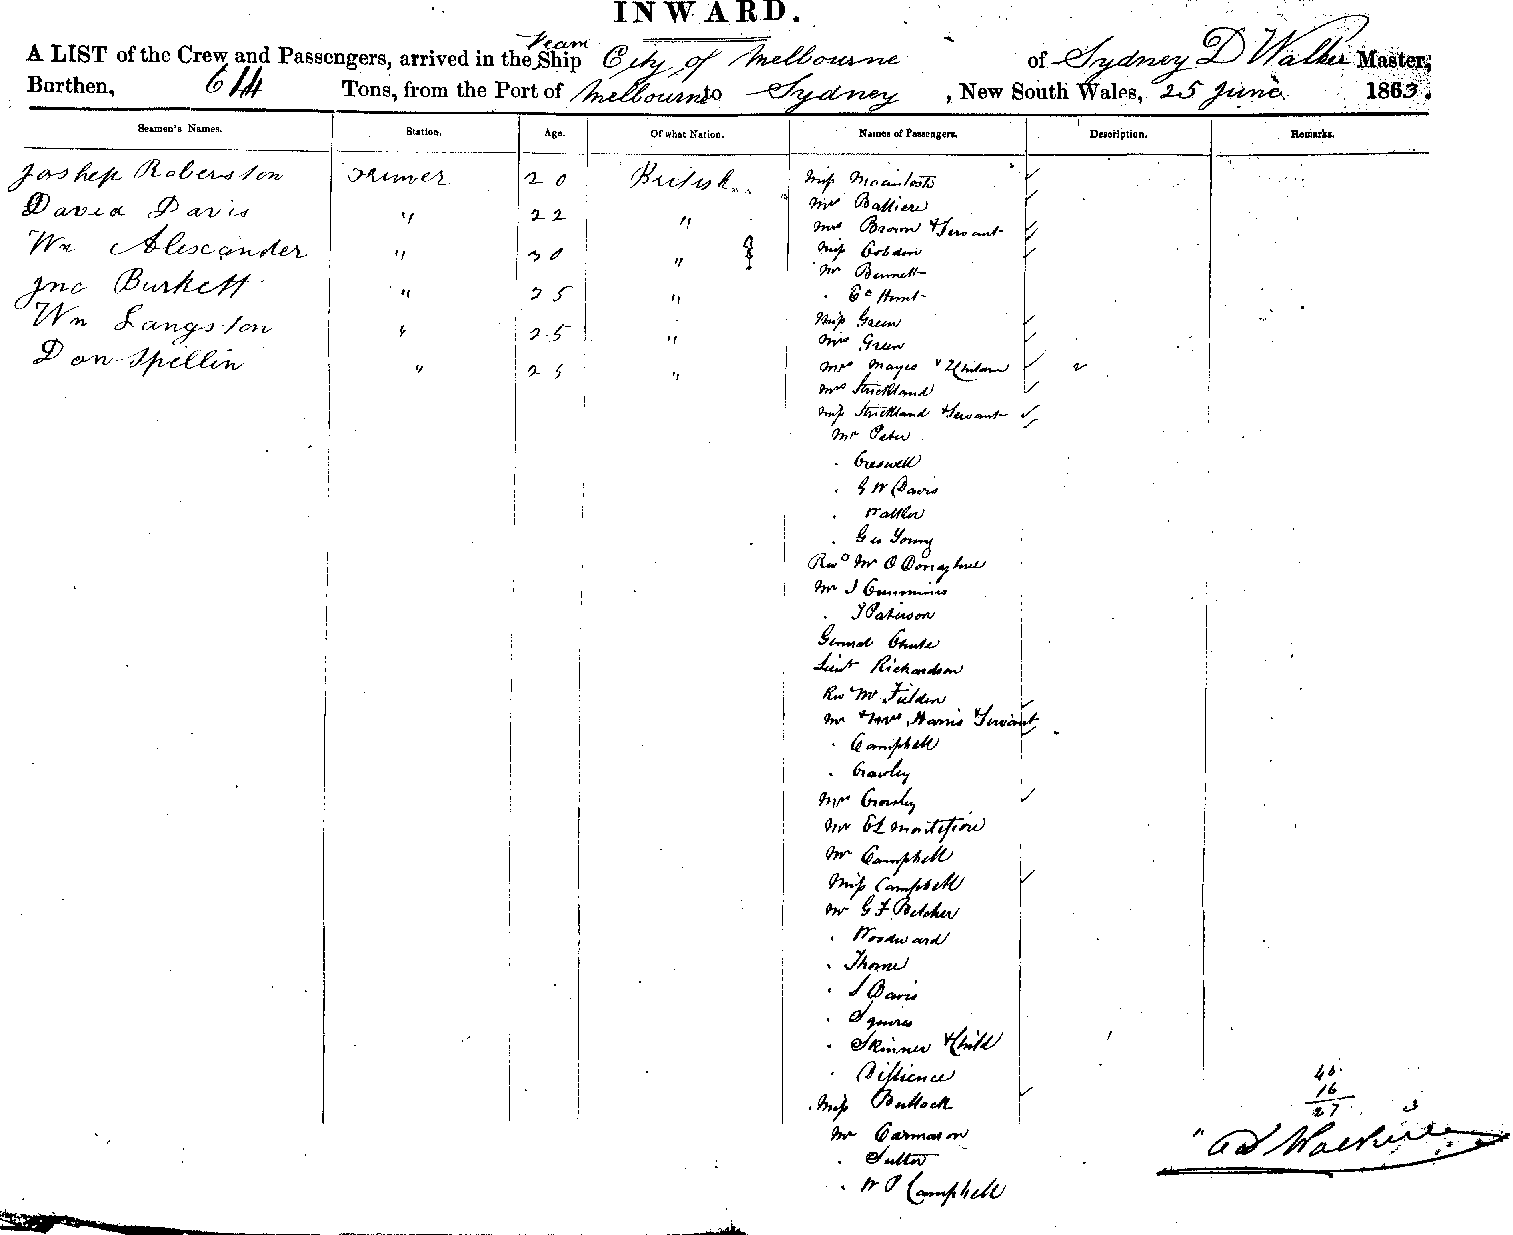 INWARD.
A LIST of the Crew and Passengers, arrived in the Steam Ship City of Melbourne of Sydney D Walker Master,
Burthen, 614 Tons, from the Port of Melbourne to Sydney, New South Wales, 25 June 1863.
Seamen's Names. Station. Age. Of what Nation. Names of Passengers. Description. Remarks.
Joshep Roberston Trimer 20 British Miss Macintosh
David Davis " 22 " Mrs Balliere
Mrs Brown & Servant
Wm Alexander " 30 " Miss Cobden
Mr Bennett
Jno Burkett " 25 " " Ed Hunt
Wm Langston " 25 " Miss Green
Mrs Green
Don Spellin " 25 " Mrs Mayes & 2 Children 2
Mrs Strickland
Miss Strickland & Servant
Mr Peter
" Creswell
" G W Davis
" Walker
" Geo Young
Revd Mr O Donaghue
Mr J Cummins
" J Paterson
General Chute
Lieut Richardson
Rev Mr Fielden
Mr & Mrs Harris & Servant
" Campbell
" Crawley
Mrs Crawley
Mr E L Montefiore
Mr Campbell
Miss Campbell
Mr G F Belcher
" Woodward
" Thorne
" S Davis
" Squires
" Skinner & Child
"
Miss Bullock
16
27 3
Mr
" Sutter
" W P Campbell
D Walker